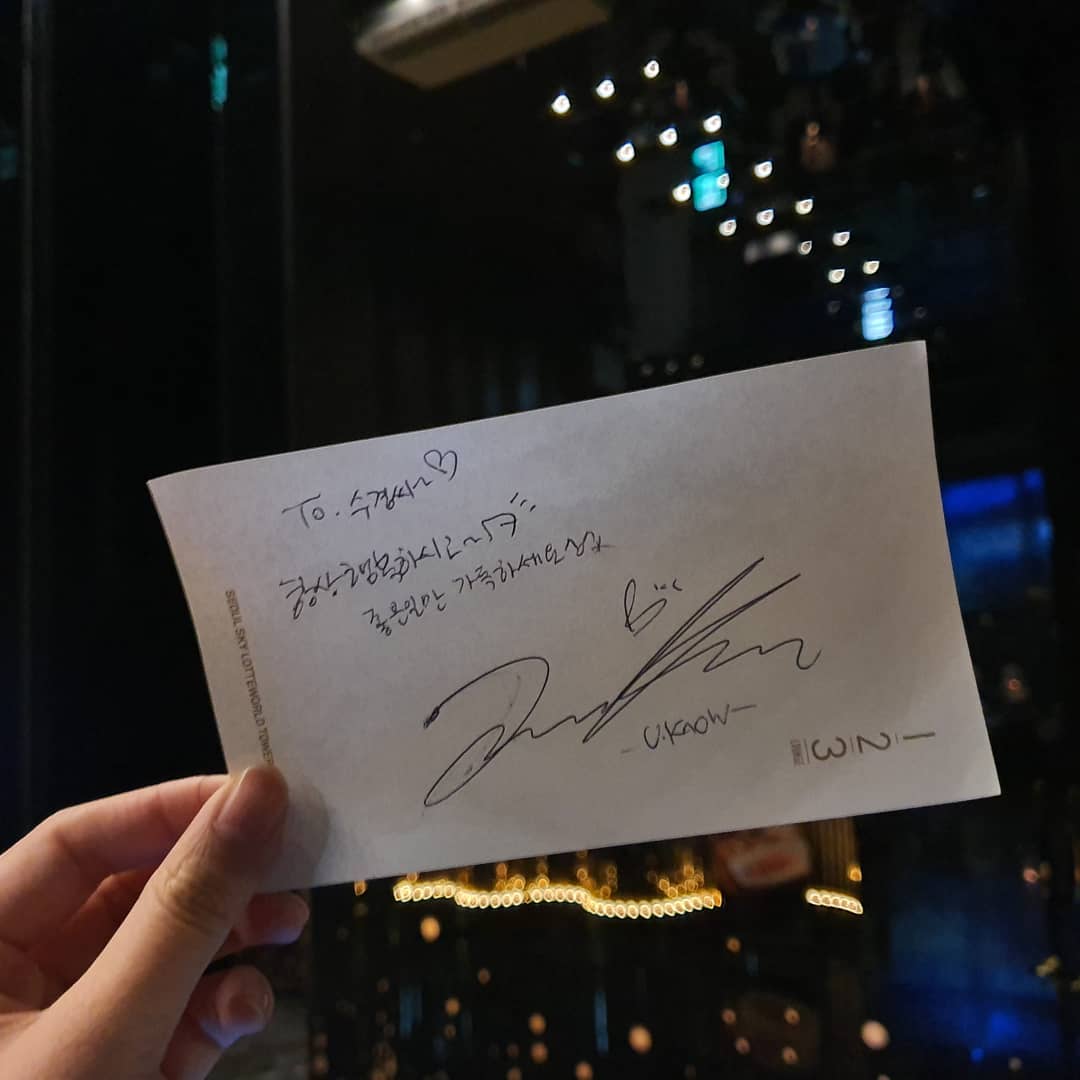 To. 수경씨~♡
항상 행복하시고~
좋은일만 가득하세요
U.KNOW
SEOUL SKY LOTTEWORLD TOWER
123
LOUNGE